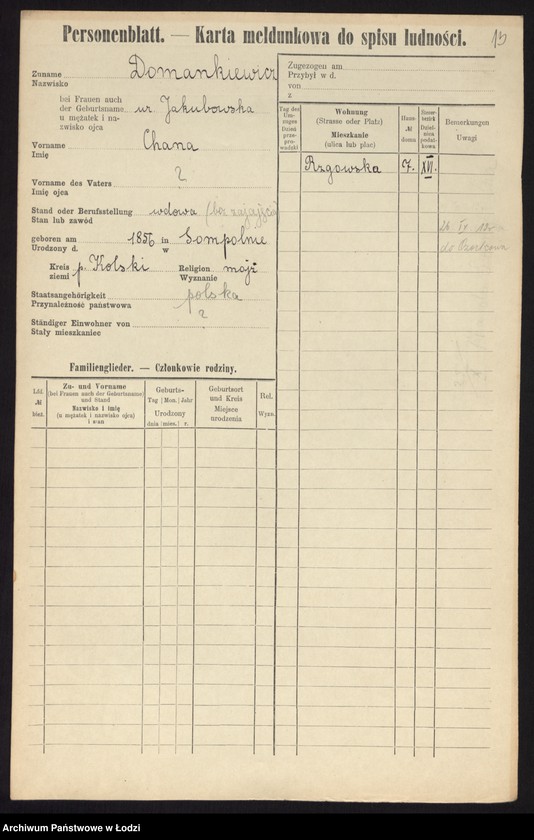 Personenblatt. — Karta meldunkowa do spisu ludności.
Zuname
Nazwisko
Domankiewicz
bei Frauen auch
der Geburtsname
u mężatek i na-
zwisko ojca
ur Jakubowska
Vorname
Imię
Chana
Vorname des Vaters
Imię ojca
?
Stand oder Berufsstellung
Stan lub zawód
wdowa (bez zajęcia)
geboren am
Urodzony d.
1856 in
w
Sompolnie
Kreis
ziemi
p. Kolski
Religion
Wyznanie
mojż
Staatsangehörigkeit
Przynależność państwowa
polska
Ständiger Einwohner von
Stały mieszkaniec
?
Familienglieder. — Członkowie rodziny.
Lfd. № bież.
Zu- und Vorname
(bei Frauen auch der Geburtsname)
und Stand
Nazwisko i imię
(u mężatek i nazwisko ojca)
i stan
Geburts-
Tag Mon. Jahr
Urodzony
dnia mies. r.
Geburtsort
und Kreis
Miejsce
urodzenia
Rel.
Wyzn.
Zugezogen am
Przybył w d.
von
z
Tag des
Um-
zuges
Dzień
prze-
pro-
wadzki
Wohnung
(Strasse oder Platz)
Mieszkanie
(ulica lub plac)
Haus-
№
domu
Steuer-
bezirk
Dziel-
nica
podat-
kowa
Bemerkungen
Uwagi
Rzgowska 7. XVI.
do Ozorkowa
Archiwum Państwowe w Łodzi